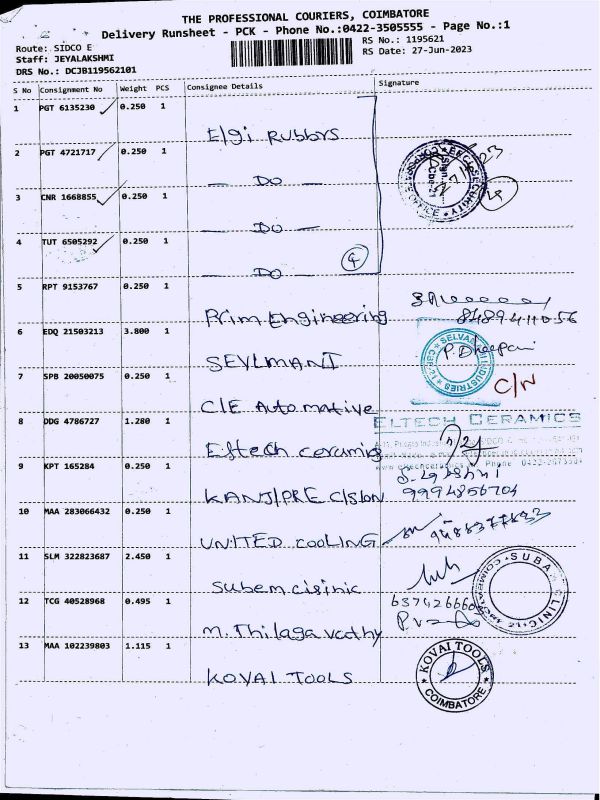 THE PROFESSIONAL COURIERS, COIMBATORE
Delivery Runsheet - PCK - Phone No.:0422-3505555 - Page No.:1
Route: SIDCO E
RS No.: 1195621
Staff: JEYALAKSHMI
RS Date: 27-Jun-2023
DRS No.: DCJB119562101
S No Consignment No Weight PCS Consignee Details Signature
1 PGT 6135230 0.250 1
Elgi Rubbors
2 PGT 4721717 0.250 1
— DO —
3 CNR 1668855 0.250 1
— DO —
4 TUT 6505292 0.250 1
— DO — 4
5 RPT 9153767 0.250 1
Prim Engineering
6 EDQ 21503213 3.800 1
SEVLMANI P. Dheepan
7 SPB 20050075 0.250 1 C/N
C/E Automative
8 DDG 4786727 1.280 1 ELTECH CERAMICS
Eltech ceramics
9 KPT 165284 0.250 1
9994856704
10 MAA 283066432 0.250 1
UNITED COOLING
11 SLM 322823687 2.450 1
SUBA CLINIC
12 TCG 40528968 0.495 1
M. Thilagavathy
13 MAA 102239803 1.115 1
KOVAI TOOLS
KOVAI TOOLS
COIMBATORE